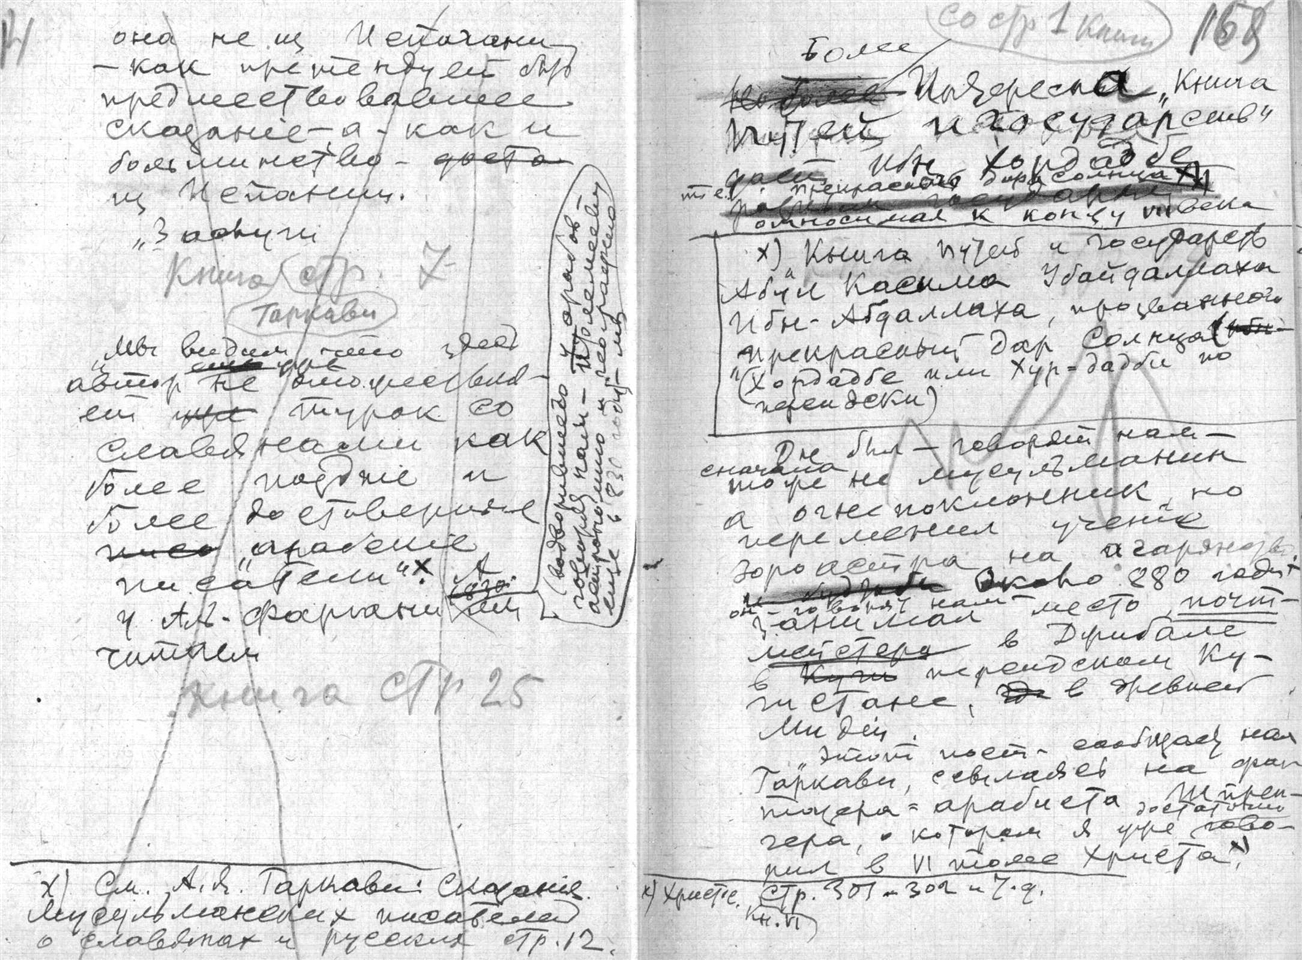 она не из Испании
– как претендует быть
предшествовавшее
сказание – а – как и
большинство –
из Испании.
"Заслуги
Книга стр. 7
Гаркави
"Мы видим что здесь
автор не отожествля-
ет турок со
славянами как
более поздние и
более достоверные
"арабские
писатели" х
У Аль-Фаргани
читаем
книга стр 25
(
говоря нам –
астрономию и географию
еще в 830 году –
х) См. А.Я. Гаркави: Сказания
мусульманских писателей
о славянах и русских стр. 12.
со стр 1 книги
168
Более
Интересна "Книга
путей и государств"
Ибн Хордадбе
т.е. прекрасный дар солнца х)
относимая к концу века
х) Книга путей и государств
Абуль Касима Убайдаллаха
Ибн-Абдаллаха, прозванного
прекрасный дар солнца
(Хордадбе или Хур-дадби по
персидски)
Он был – говорят нам –
сначала
тоже не мусульманин
а огнепоклонник, но
переменил учение
Зороастра на агарянство.
Около 280 года
он – говорят нам –
занимал место почт-
мейстера в Джибале
в персидском Ку-
гистане, в древней
Мидии.
"Этот пост – сообщает нам
Гаркави, ссылаясь на
арабиста Шпрен-
гера, о котором я уже достаточно гово-
рил в VI томе Христа х)
х) Христос, стр. 301–302 и т.д.
кн. VI